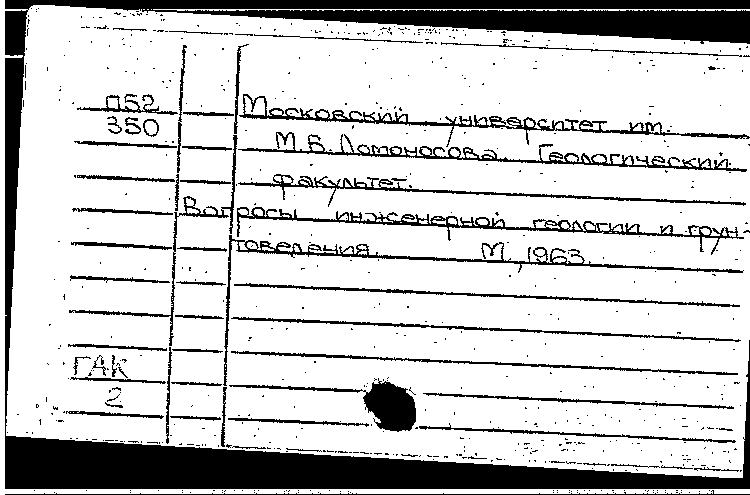 П52
350
Московский университет им.
М.В. Ломоносова. Геологический
факультет.
Вопросы инженерной геологии и грун-
товедения. М., 1963.
ГАК
2